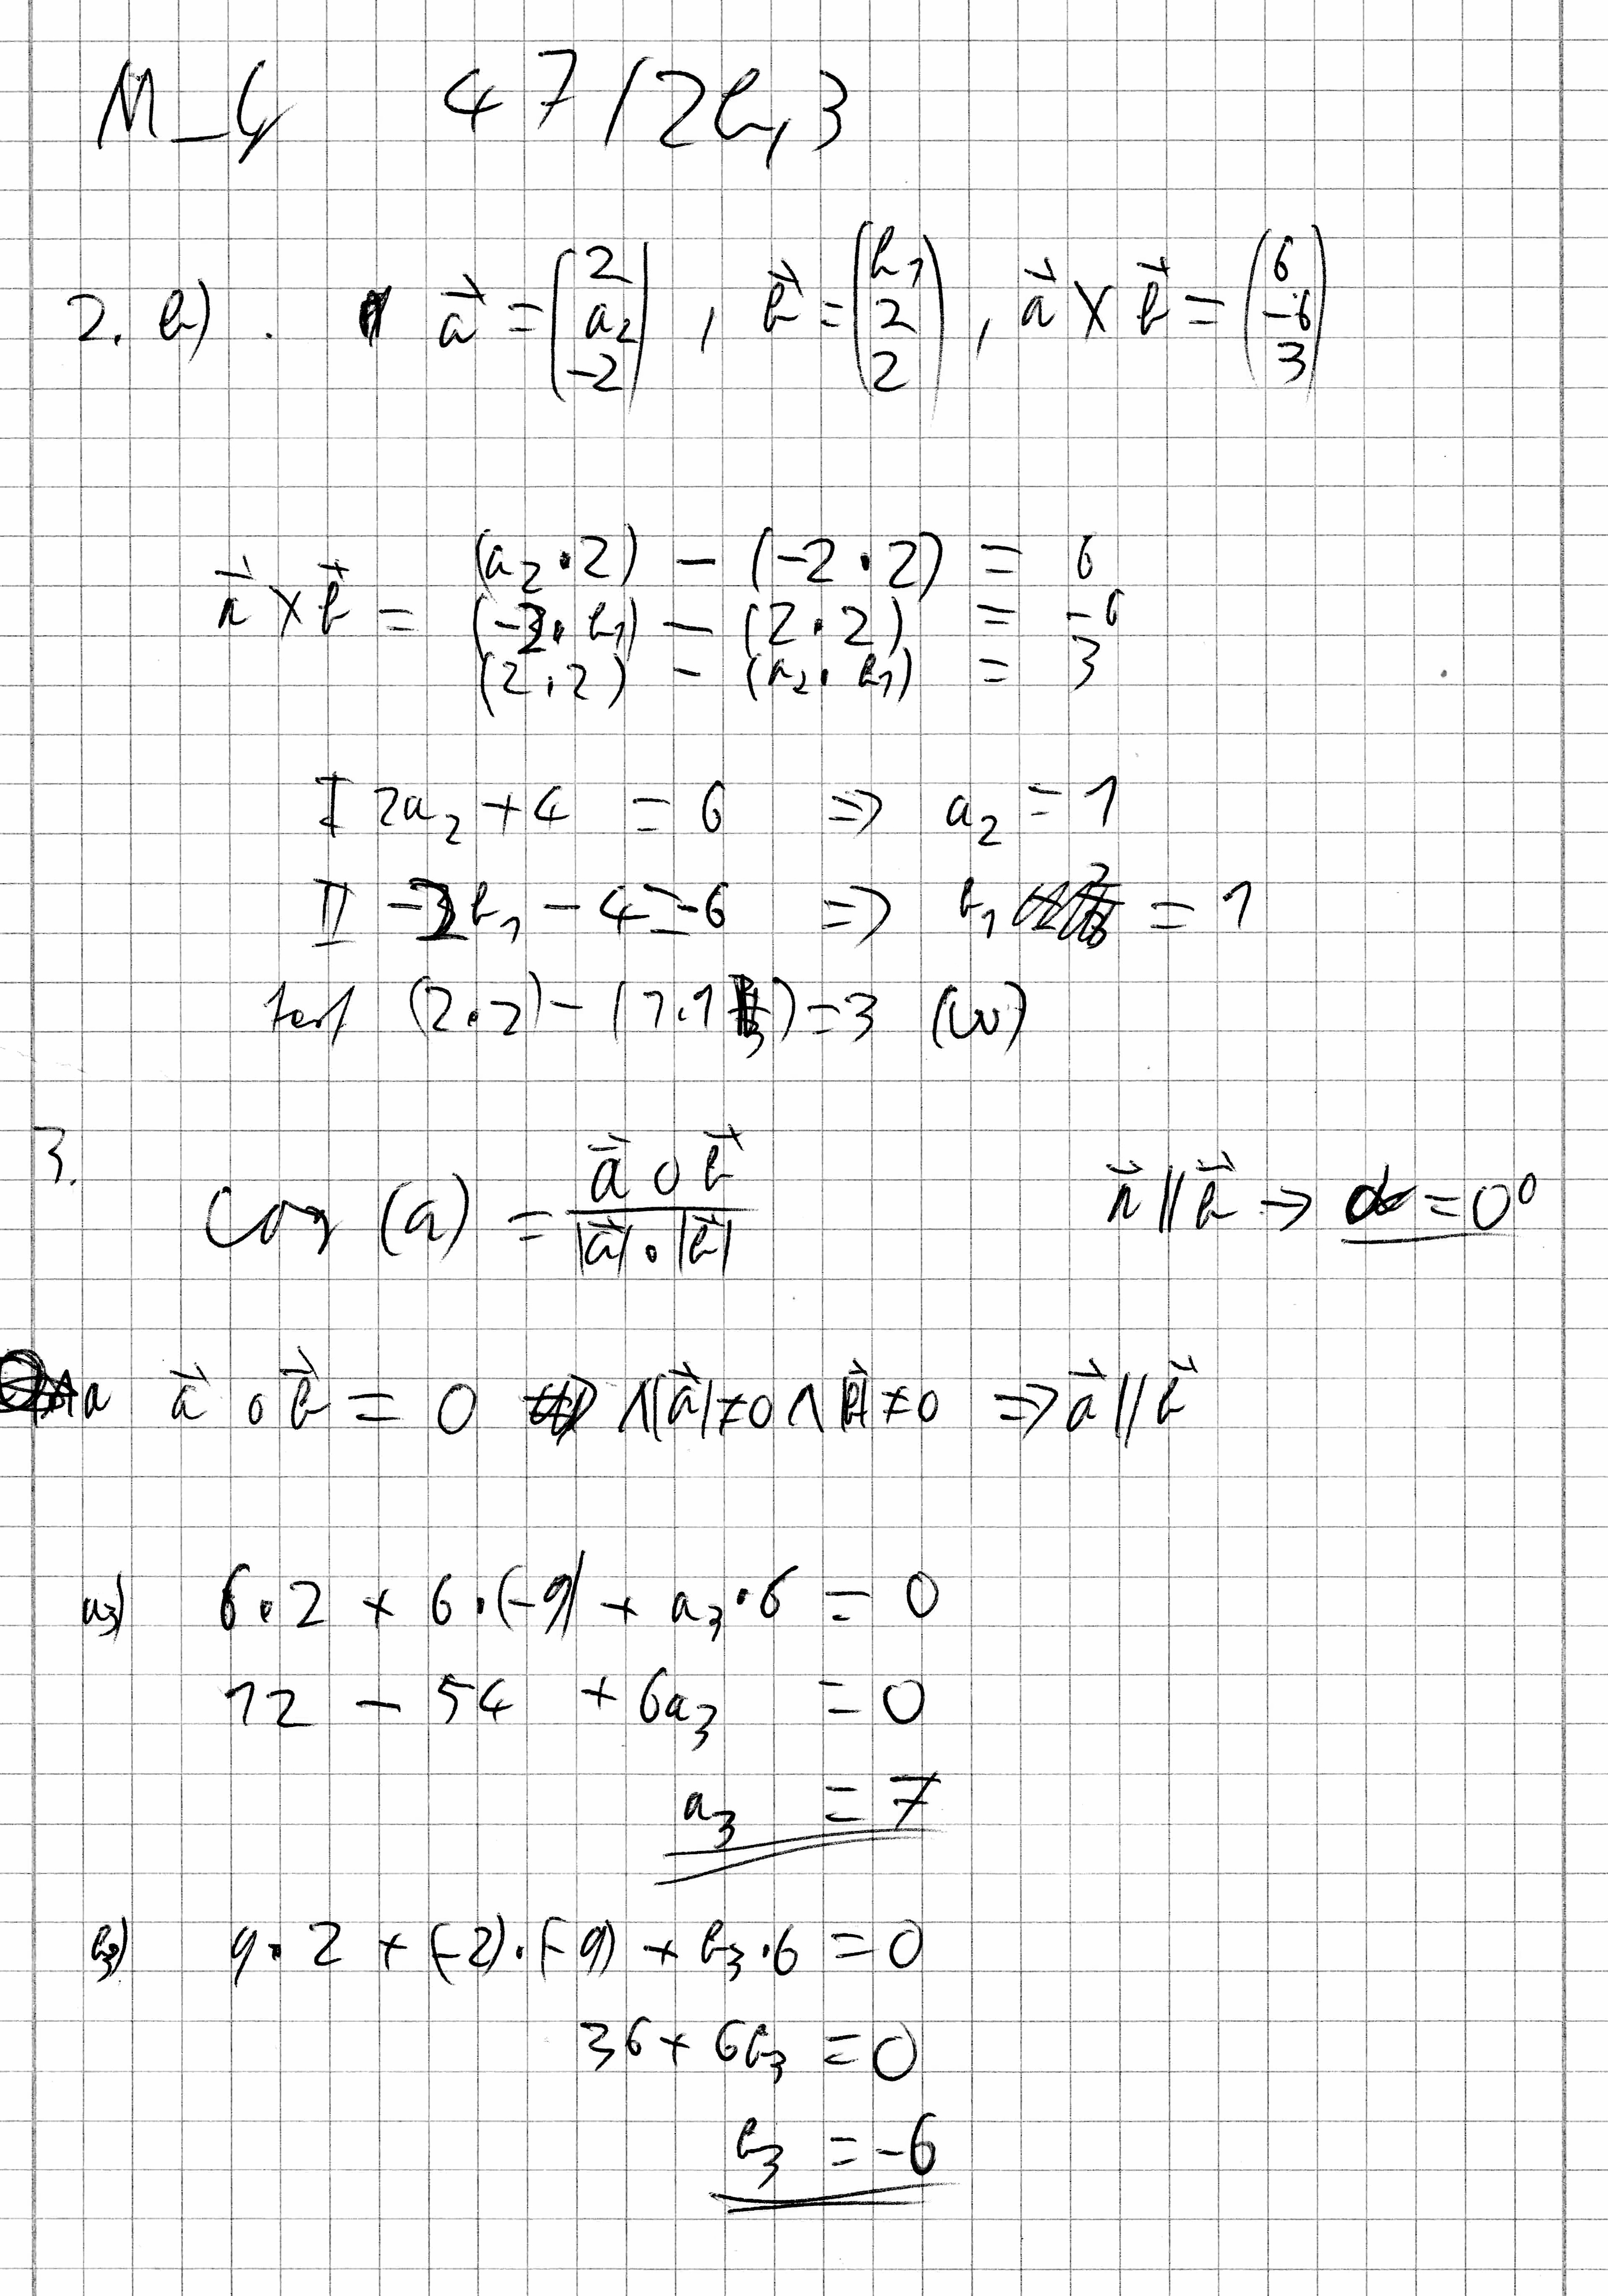 M_G 47/2b,3
2. b) . a⃗ = (2 a₂ -2) , b⃗ = (b₁ 2 2) , a⃗ × b⃗ = (6 -6 3)
(a₂ · 2) - (-2 · 2) = 6
a⃗ × b⃗ = (-2 · b₁) - (2 · 2) = -6
(2 · 2) - (a₂ · b₁) = 3
I 2a₂ + 4 = 6 => a₂ = 1
II -2b₁ - 4 = -6 => b₁ = 1
test (2 · 2) - (1 · 1) = 3 (w)
3. cos (a) = a⃗ ∘ b⃗ / |a⃗| · |b⃗| a⃗ // b⃗ → α = 0°
a⃗ ∘ b⃗ = 0 ∧ |a⃗| ≠ 0 ∧ |b⃗| ≠ 0 => a⃗ // b⃗
a₃) 6 · 2 + 6 · (-9) + a₃ · 6 = 0
12 - 54 + 6a₃ = 0
a₃ = 7
b₃) 9 · 2 + (-2) · (-9) + b₃ · 6 = 0
36 + 6b₃ = 0
b₃ = -6